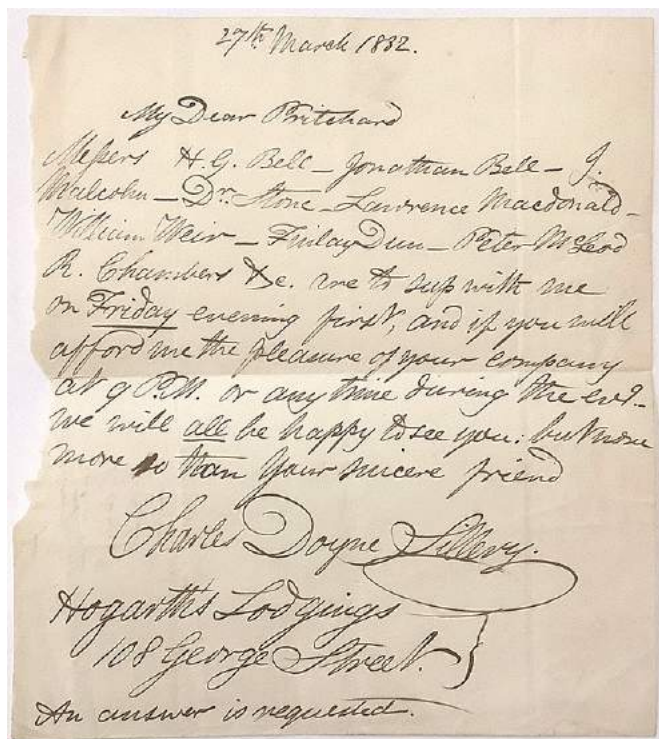 27th March 1832.
My Dear Pritchard
Messers H.G. Bell - Jonathan Bell - J.
Malcolm - Dr. Stone - Lawrence Macdonald -
William Weir - Finlay Dun - Peter McLeod
R. Chambers &c. are to sup with me
on Friday evening first, and if you will
afford me the pleasure of your company
at 9 P.M. or any time during the eveg.
we will all be happy to see you: but none
more so than Your sincere friend
Charles Doyne Sillery.
Hogarth's Lodgings
108 George Street.
An answer is requested.